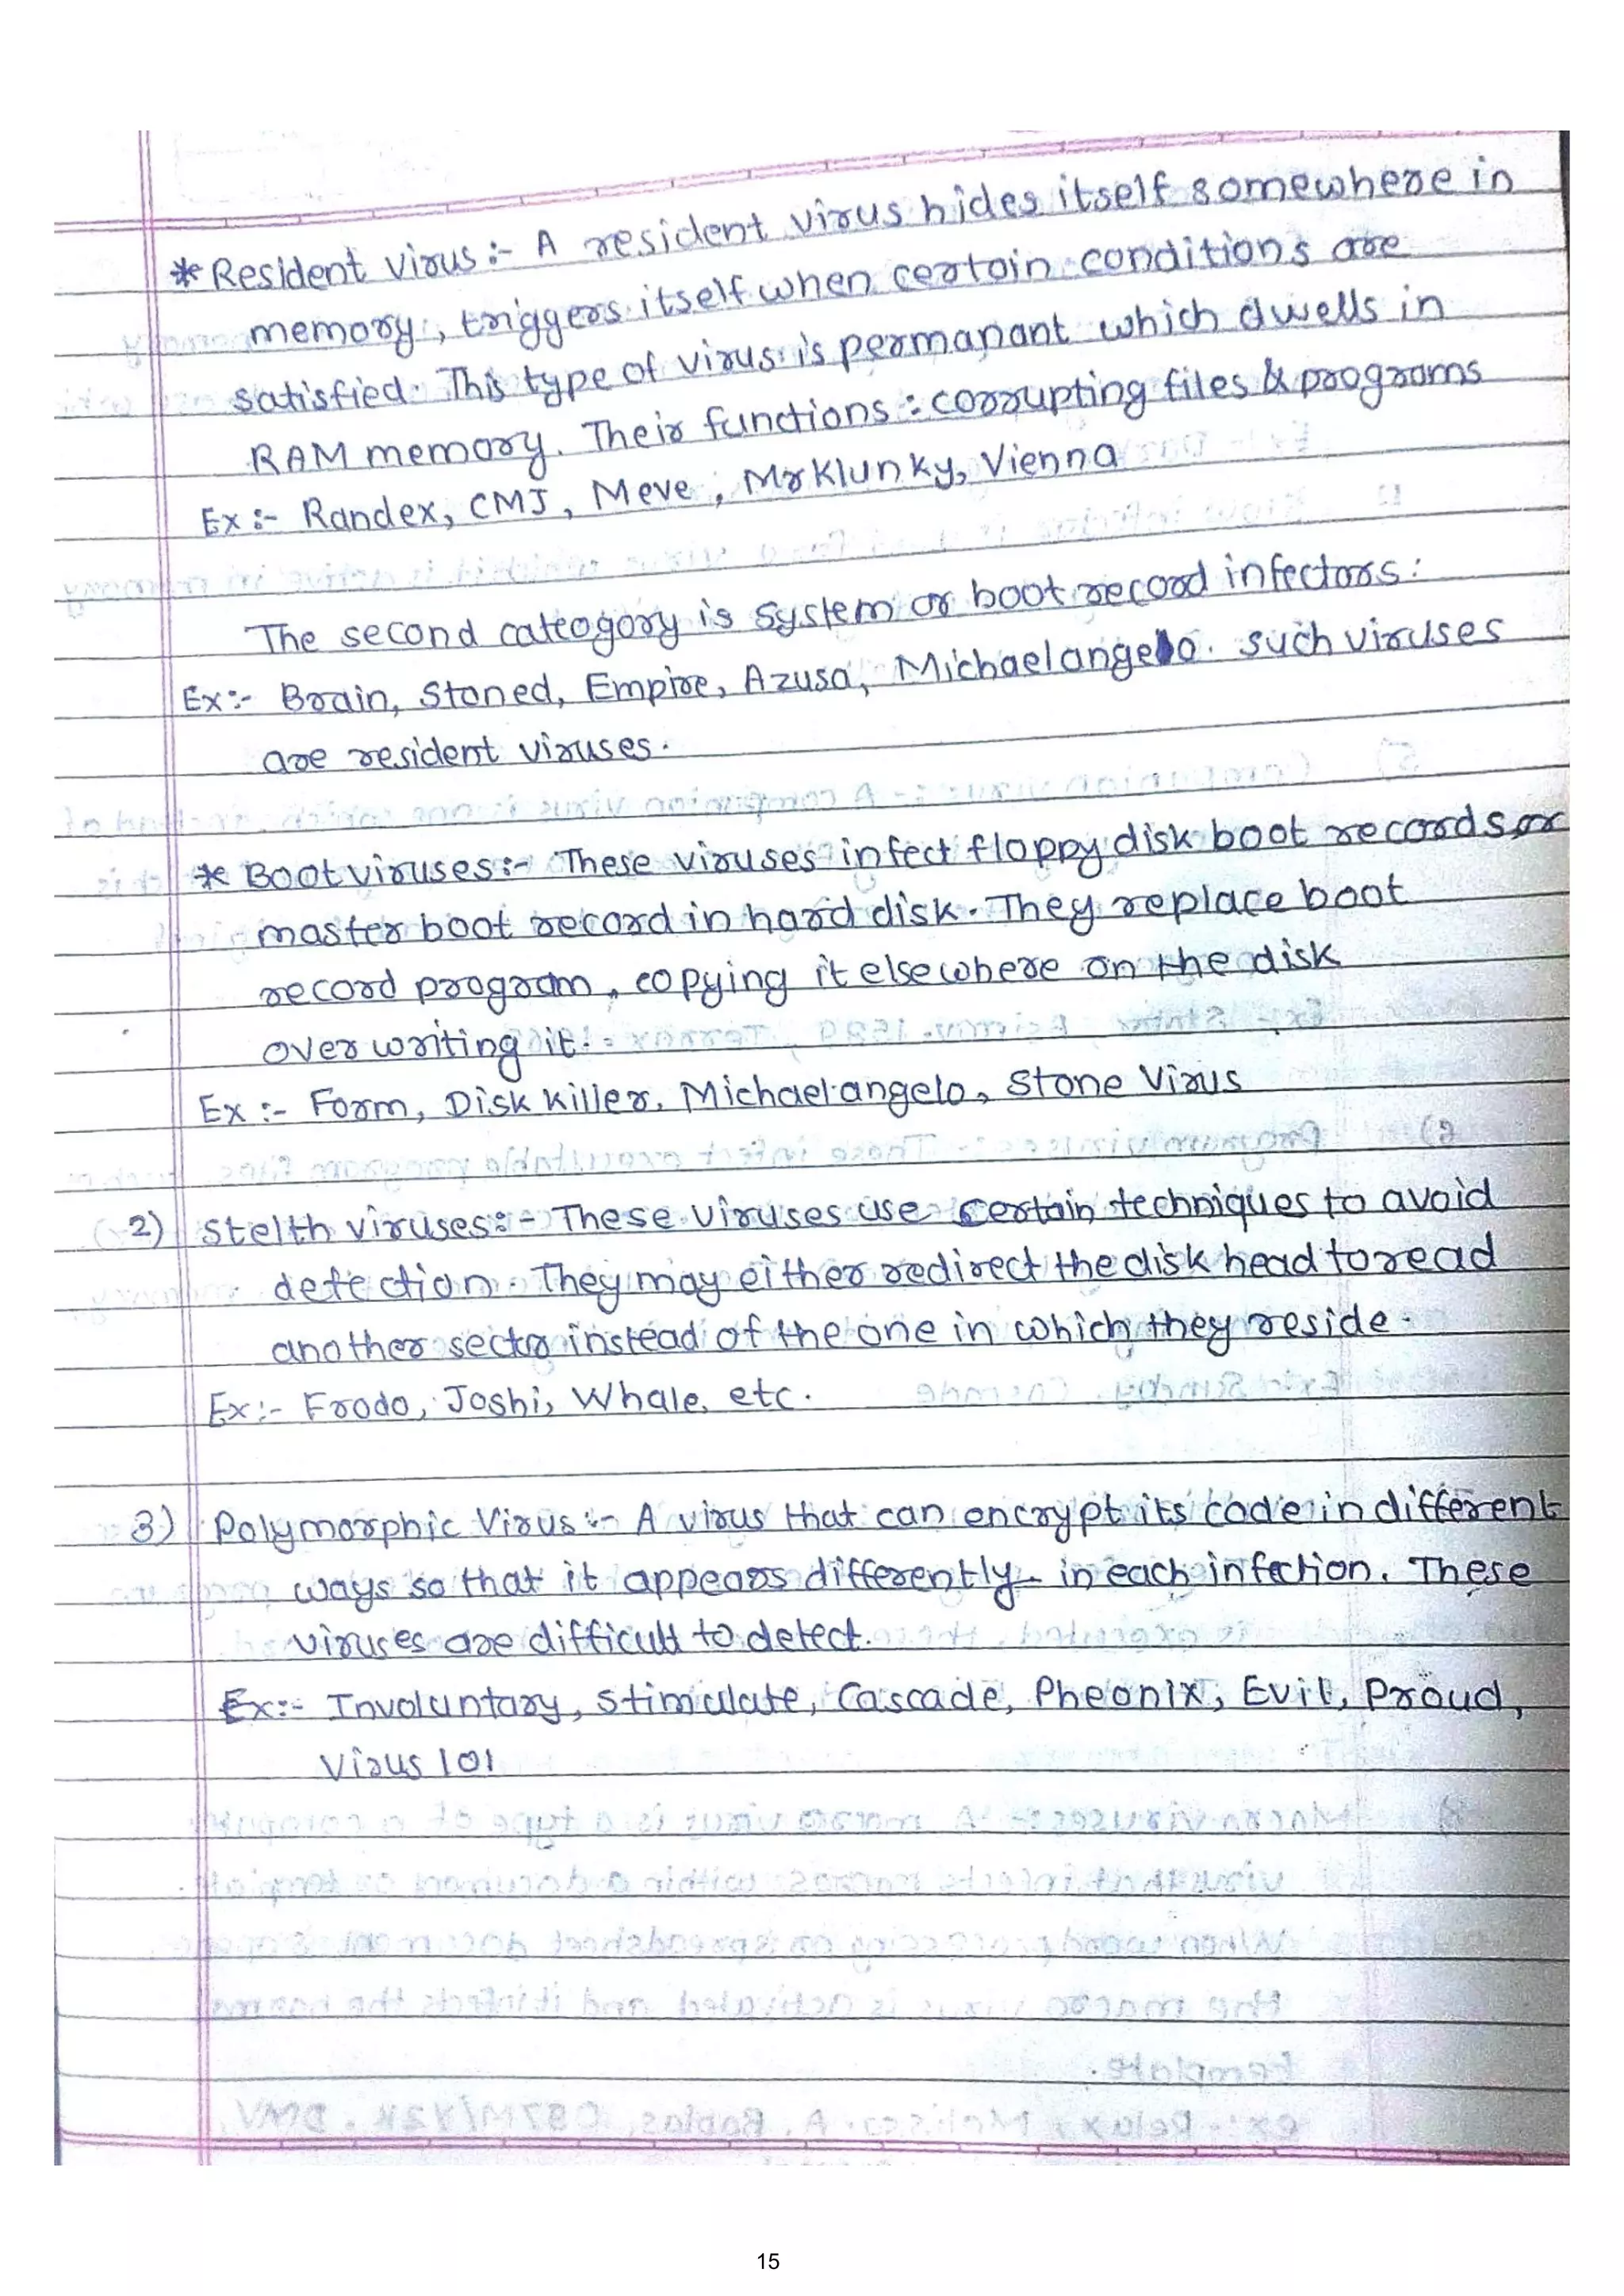 * Resident virus :- A resident virus hides itself somewhere in
memory, triggers itself when certain conditions are
satisfied. This type of virus is permanant which dwells in
RAM memory. Their functions : corrupting files & programs
Ex :- Randex, CMJ, Meve, MrKlunky, Vienna
The second cateogory is system or boot record infectors :
Ex :- Brain, Stoned, Empire, Azusa, Michaelangelo. such viruses
are resident viruses.
* Boot viruses :- These viruses infect floppy disk boot records or
master boot record in hard disk. They replace boot
record program, copying it elsewhere on the disk
over writing it.
Ex :- Form, Disk killer, Michaelangelo, Stone Virus
2) Stelth viruses :- These viruses use certain techniques to avoid
detection. They may either redirect the disk head to read
another sector instead of the one in which they reside.
Ex :- Frodo, Joshi, Whale, etc.
3) Polymorphic Virus :- A virus that can encrypt its code in different
ways so that it appears differently in each infection. These
viruses are difficult to detect.
Ex :- Involuntary, Stimulate, Cascade, Pheonix, Evil, Proud,
Virus 101
15